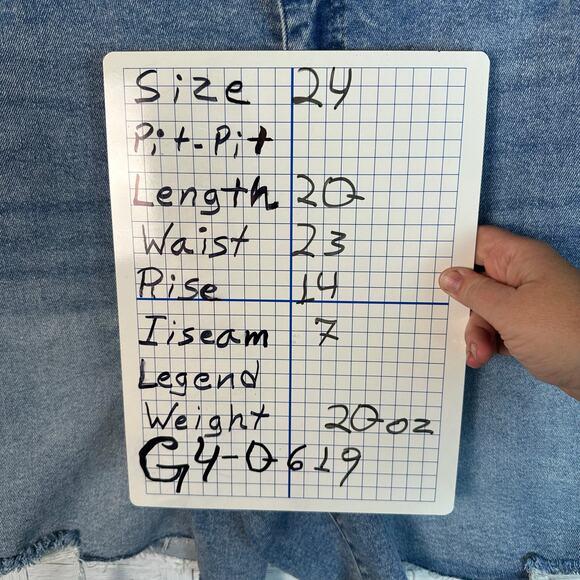 Size 24
Pit-Pit
Length 20
Waist 23
Rise 14
Iiseam 7
Legend
Weight 20 oz
G4-0619